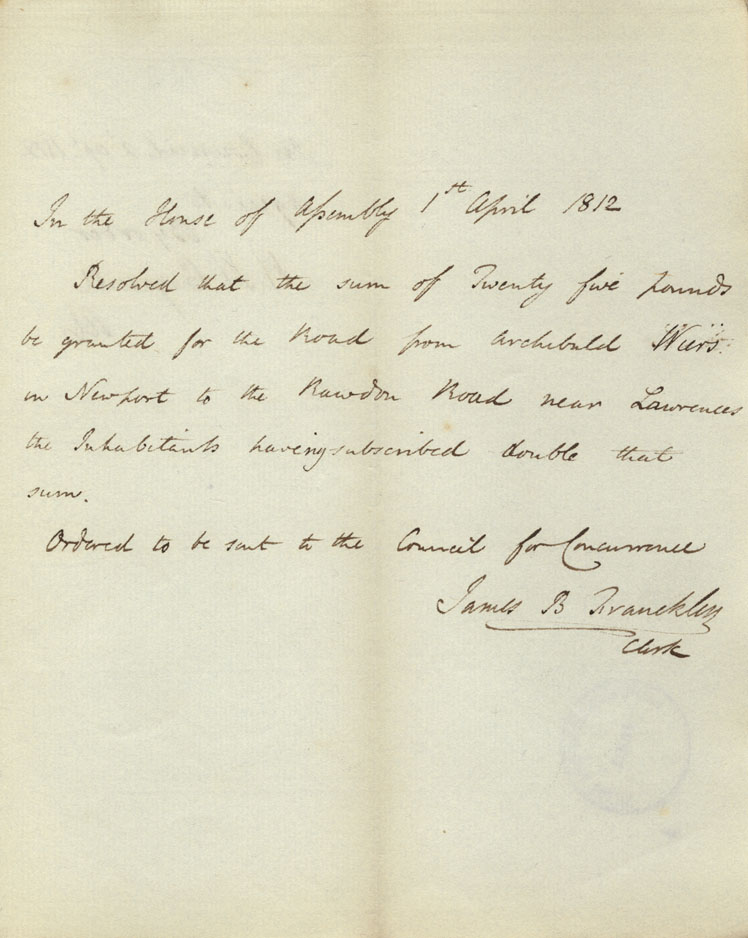 In the House of Assembly 1st April 1812
Resolved that the sum of Twenty five pounds
be granted for the Road from Archibald Wiers
in Newport to the Rawdon Road near Lawrences
the Inhabitants having subscribed double that
sum.
Ordered to be sent to the Council for Concurrence
James B Franchklin
Clerk